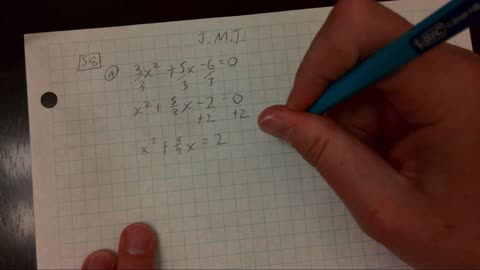 J.M.J.
58
a 3x² + 5x - 6 = 0
3 3 3
x² + 5/3 x - 2 = 0
+2 +2
x² + 5/3 x = 2
BIC